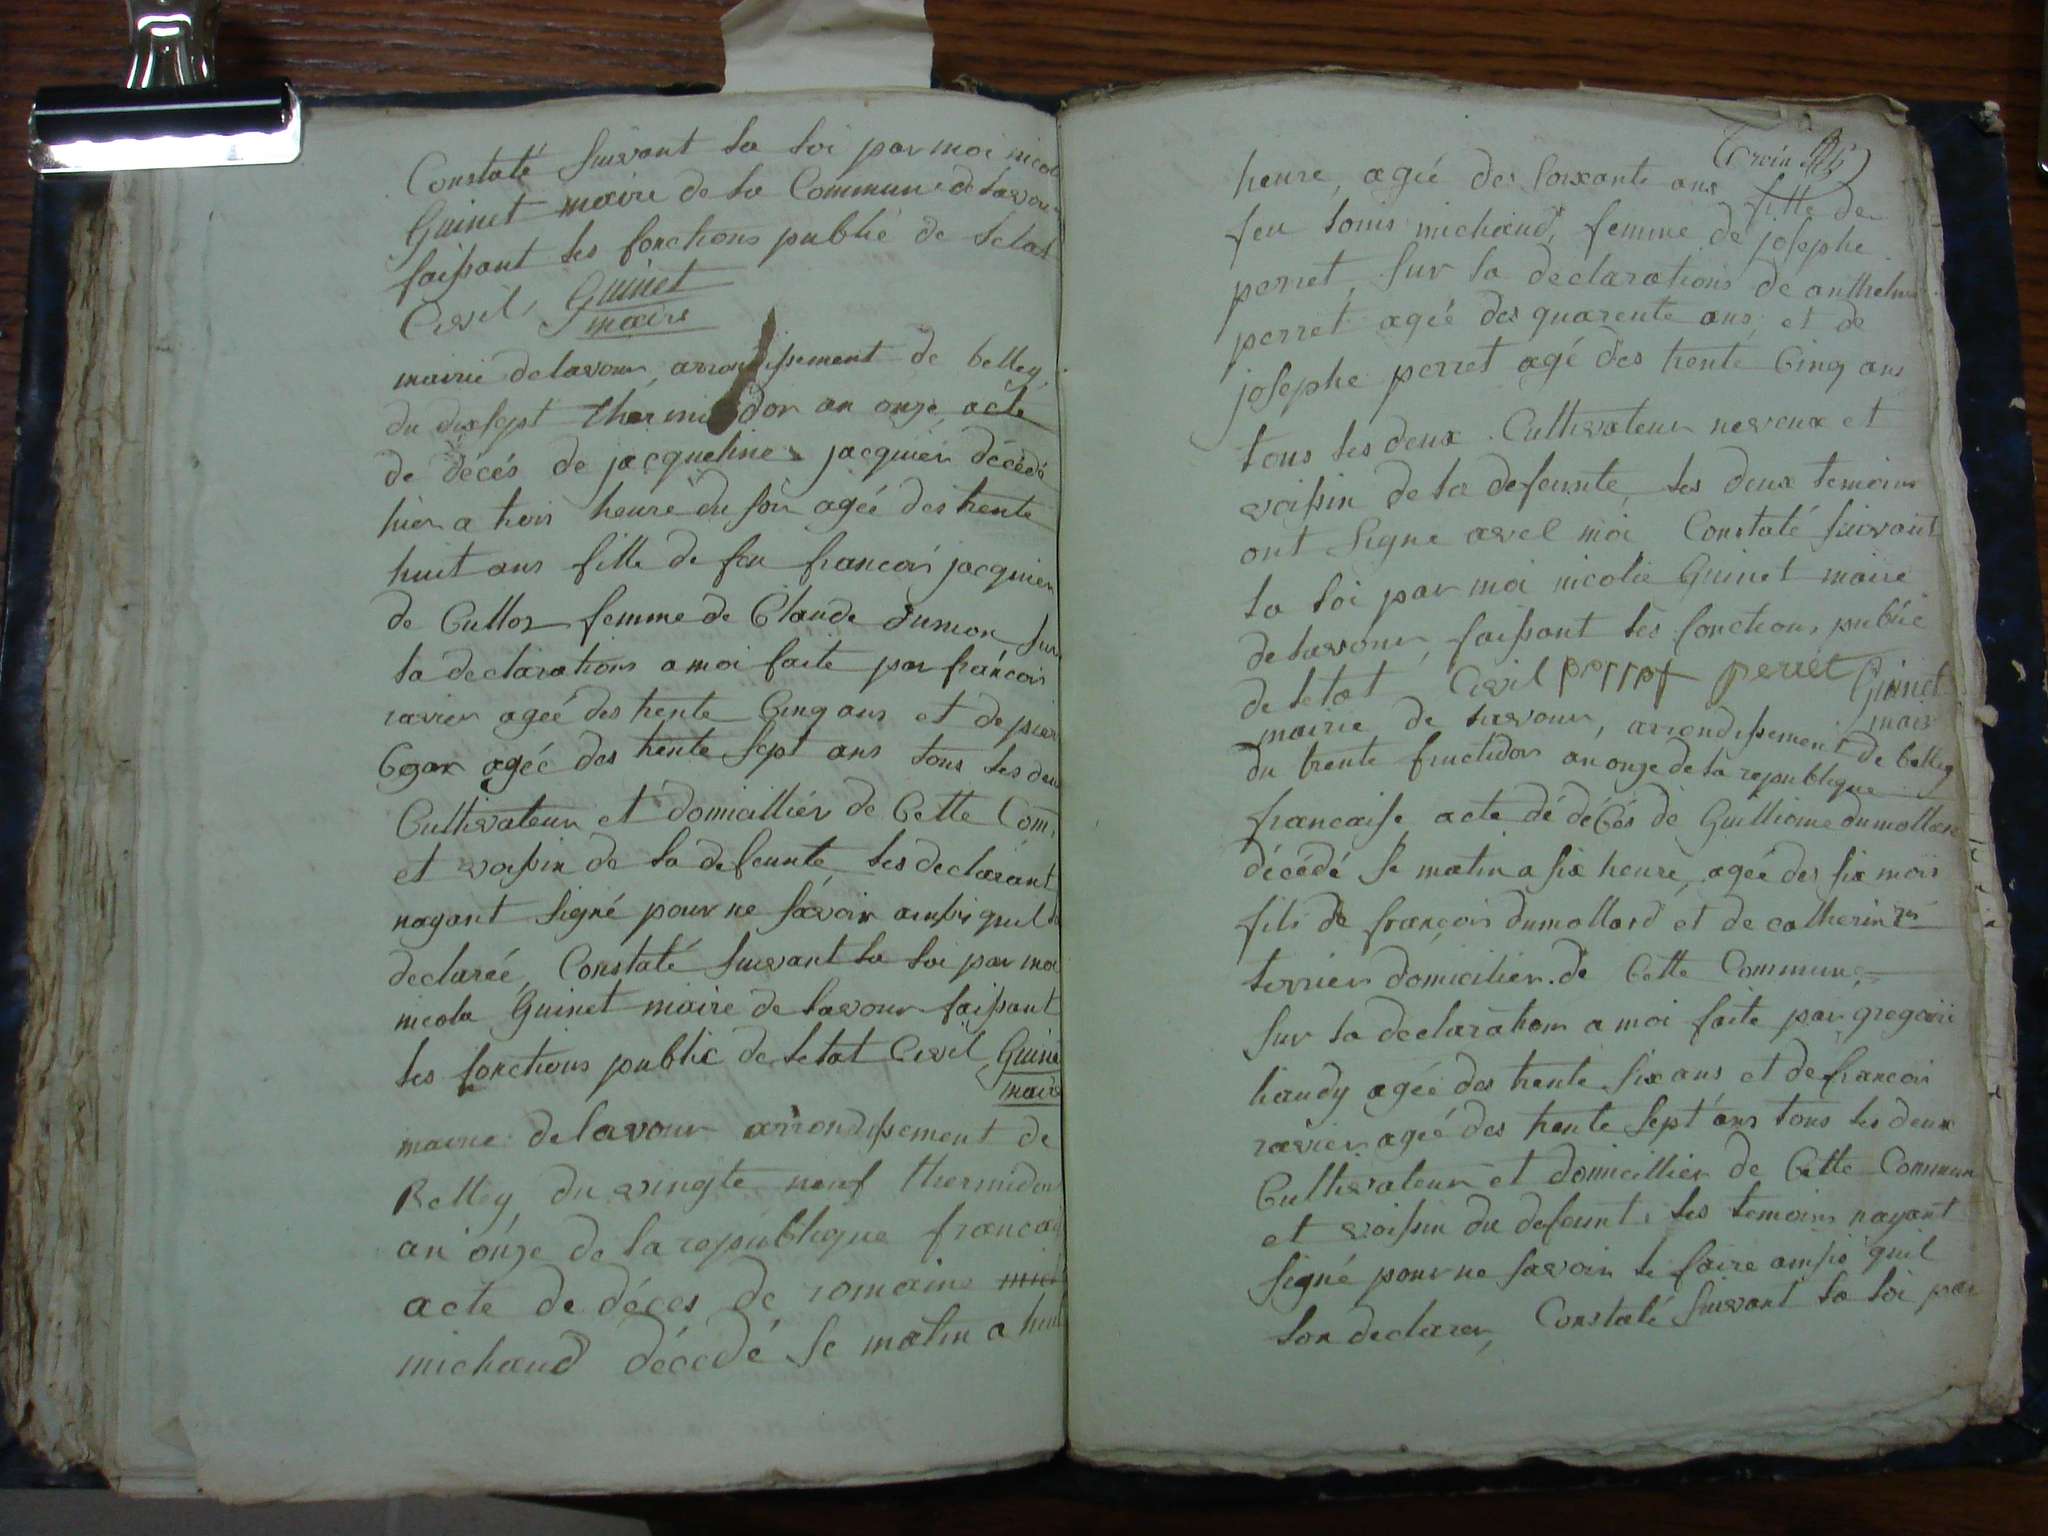 Constaté suivant la loi par moi nicola
Guinet maire de la Commune de lavour
faissant les fonctions publié de letat
Civil, Guinet
maire
mairie delavour, arrondissement de belley
du dixsept thermidor an onze, acte
de décés de jacqueline jacquier décédé
hier a trois heure du soir agéé des trente
huit ans fille de feu francois jacquier
de Culloz femme de Claude dumon sur
la declarations a moi faite par francois
ravier agéé des trente Cinq ans et de pier
Cgar agéé des trente sept ans tous les deux
Cultivateur et domicillier de Cette Com.
et voissin de la defeunte les declarant
nayant signé pour ne savoir ainssi quil
declaréé, Constaté suivant la loi par moi
nicola Guinet maire de lavour faissant
les fonctions public de letat Civil Guinet
maire
mairie delavour arrondissement de
Belley, du vingte neuf thermidor
an onze de la republique francais
acte de déces de romaine
michaud décédé se matin a huit
heure, agéé des soixante ans fille de
feu louis michaud, femme de josephe
perret, sur la declarations de anthelme
perret agéé des quarente ans, et de
josephe perret agé des trente Cinq ans
tous les deux Cultivateur neveux et
voissin de la defeunte, les deux temoins
ont signe avel moi Constaté suivant
la loi par moi nicola Guinet maire
delavour, faissant les fonctions publié
de letat Civil perret perret Guinet
maire
mairie de lavour, arrondissement de belley
du trente fructidor an onze de la republique
francaise acte dé décés de Guilliaume dumollard
décédé se matin a six heure, agéé des six mois
fils de françois dumollard et de catherine
terrier domicilier de Cette Commune
sur la declarations a moi faite par gregoire
handy agéé des trente six ans et de francois
ravier agéé des trente sept ans tous les deux
Cultivateur et domicillier de Cette Commun
et voissin du defeunt, les temoins nayant
signé pour ne savoir le faire ainssi quil
lon declarer, Constaté suivant la loi par